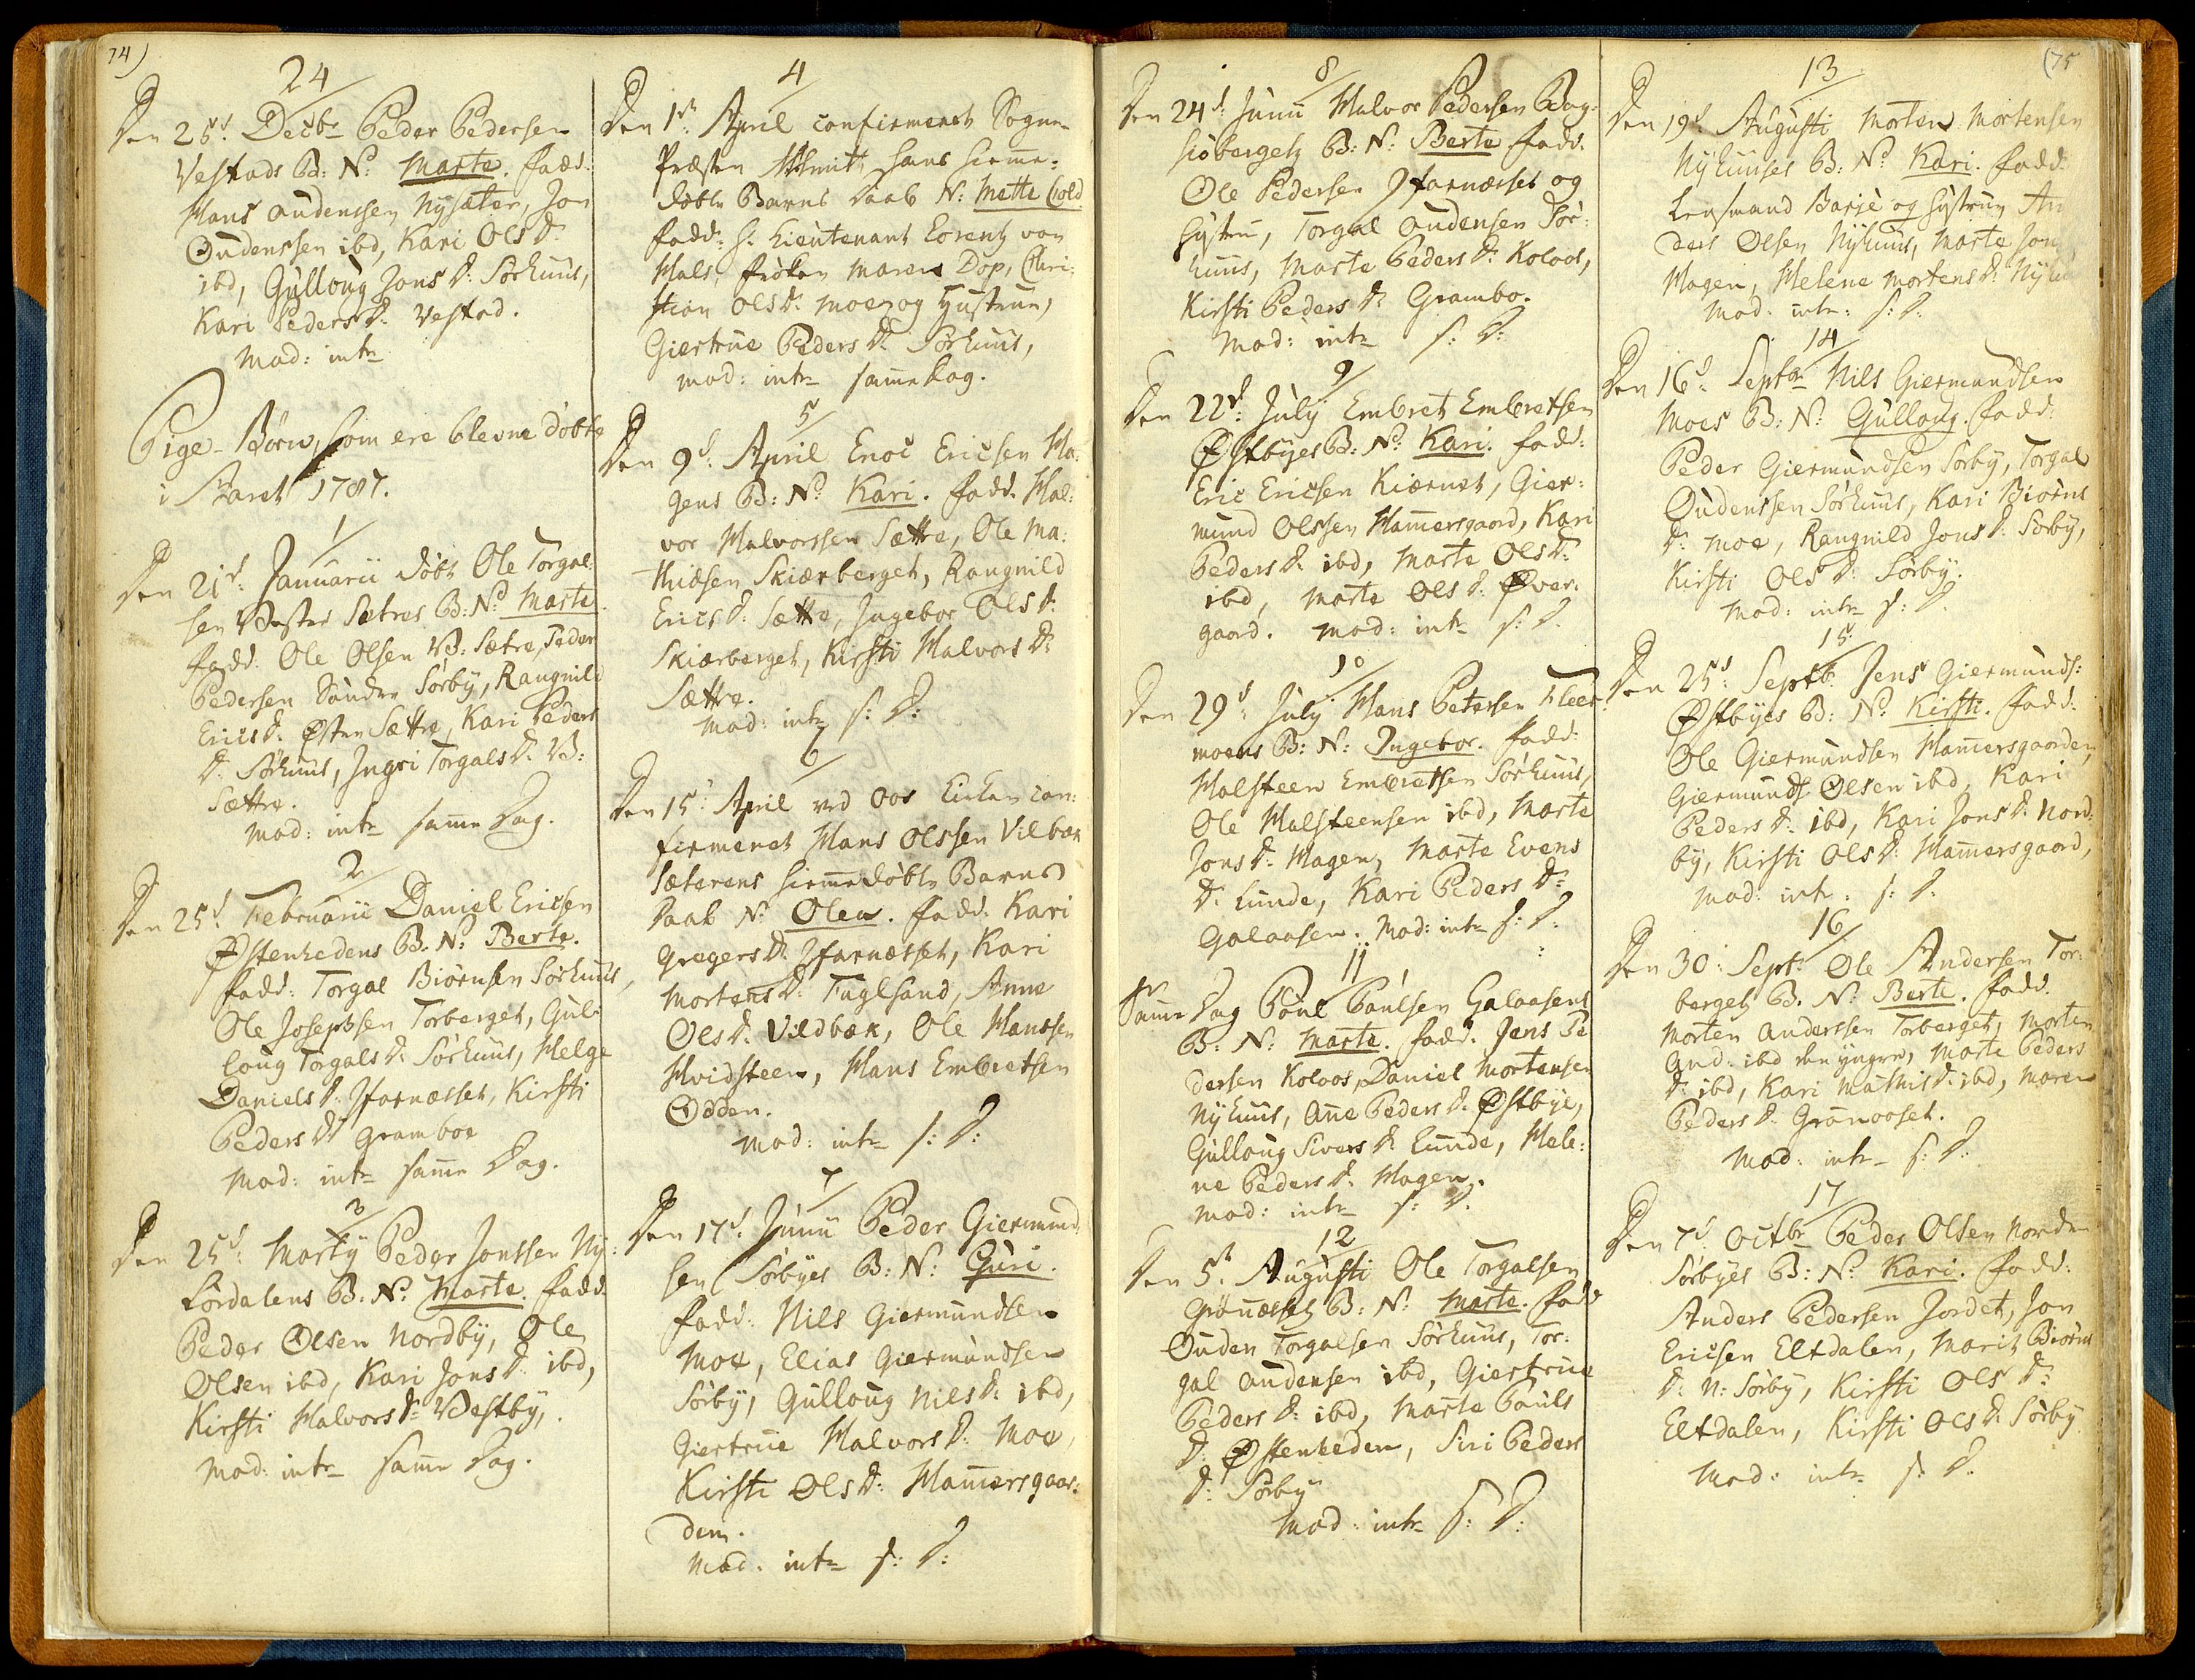 74)
24
Den 25d: Decbr Peder Pedersen
Vestads B: N: Marte. fadd:
Hans Oudenssen Nysæter, Jon
Oudenssen ibd, Kari Ols D:
ibd, Gulloug Jons D: Sørhuus,
Kari Peders D: Vestad.
Mod: intr
Pige-Børn, som ere blevne døbte
i Aaret 1787.
1
Den 21d: Januarii døbt Ole Torgal-
sen Vester Sætres B: N: Marte.
fadd: Ole Olsen V: Sætre, Peder
Pedersen Søndre Sørby, Rangnild
Erics D: Østen Sættre, Kari Peders
D: Sørhuus, Ingri Torgals D: V:
Sættre.
Mod: intr samme Dag.
2
Den 25d: Februarii Daniel Ericsen
Østenhedens B: N: Berte.
fadd: Torgal Biørnsen Sørhuus,
Ole Josephsen Torberget, Gul-
loug Torgals D: Sørhuus, Helge
Daniels D: Jfarnæsset, Kirsti
Peders D: Gramboe
Mod: intr samme Dag.
3
Den 25d: Marty Peder Jonssen Ny-
Lørdalens B: N: Marte. fadd.
Peder Olsen Nordby, Ole
Olsen ibd, Kari Jons D: ibd,
Kirsti Halvors D: Vestby,
Mod: intr samme Dag.
4
Den 1st: April confirmeret Sogne-
Præsten Schmitt hans hiemme-
døbte Barns Daab N: Mette
fadd: Hr. Lieutenant Lorentz von
Hals, frøken Maren Dop, Chri-
stian Ols D: Moe og Hustrue,
Giertrue Peders D: Sørhuus,
Mod: intr samme Dag.
5
Den 9d: April Enoc Ericsen Ha-
gens B: N: Kari. fadd. Hal-
vor Halvorssen Sættre, Ole Ma-
thiesen Skiærberget, Rangnild
Erics D: Sættre, Ingebor Ols D:
Skiærberget, Kirsti Halvors D:
Sættre.
Mod: intr s: D:
6
Den 15: April ved Aas Kirken con-
firmeret Hans Olssen Vilbæk
Sæterens hiemmedøbte Barns
Daab N: Olea. fadd: Kari
Gregers D: Jfarnæsset, Kari
Mortens D: Fuglsand, Anne
Ols D: Vildbæk, Ole Hanssen
Hvidsteen, Hans Embretsen
Odden.
Mod: intr s: D:
7
Den 17d: Junii Peder Giermund-
sen Sørbyes B: N: Guri.
fadd: Nils Giermundsen
Moe, Elias Giermundsen
Sørby, Gulloug Nils D: ibd,
Giertrue Halvors D: Moe,
Kirsti Ols D: Hammersgaar-
den.
Mod: intr s: D:
8
Den 24d: Junii Halvor Pedersen Bag-
siøbergets B: N: Berte fadd.
Ole Pedersen Jfarnæsset og
Hystru, Torgal Oudensen Sør-
huus, Marte Peders D: Kolaas,
Kirsti Peders D: Grambo.
Mod: intr s: D:
9
Den 22d: July Embret Embretsen
Østbyes B: N: Kari. fadd:
Eric Ericsen Kiærnet, Gier-
mund Olssen Hammersgaard, Kari
Peders D: ibd, Marte Ols D:
ibd, Marte Ols D: Øver-
gaard. Mod: intr s: D.
10
Den 29d: July Hans Petersen Fleer-
moens B: N: Ingebor. fadd:
Halsteen Embretsen Sørhuus,
Ole Halsteensen ibd, Marte
Jons D: Hagen, Marte Evens
D: Lunde, Kari Peders D:
Galaasen. Mod: intr s: D:
11
Samme Dag Poul Poulsen Galaasens
B: N: Marte. fadd. Jens Pe
dersen Kolaas, Daniel Mortensen
Nyhuus, Anne Peders D: Østbye,
Gulloug Sivers D: Lunde, Hele-
ne Peders D: Hagen.
Mod: intr s: D:
12
Den 5t: Augusti Ole Torgalsen
Grønæsset B: N: Marte. fadd
Ouden Torgalsen Sørhuus, Tor-
gal Oudensen ibd, Giertrue
Peders D: ibd, Marte Pouls
D: Østenheden, Siri Peders
D: Sørby
Mod: intr s: D:
(75
13
Den 19d: Augusti Morten Mortensen
Nyhuuses B: N: Kari. fadd.
Lensmand Barje og Hystrue, An
ders Olsen Nyhuus, Marte Jons
Hagen, Helene Mortens D: Nyhu
Mod: intr: s: D:
14
Den 16d: Septbr Nils Giermundsen
Moes B: N: Gulloug. fadd:
Peder Giermundsen Sørby, Torgal
Oudenssen Sørhuus, Kari Biørns
D: Moe, Rangnild Jons D: Sørby,
Kirsti Ols D: Sørby.
Mod: intr s: D.
15
Den 25d: Septb: Jens Giermunds:
Østbyes B: N: Kirsti. fadd:
Ole Giermundsen Hammersgaarden,
Giermund Olsen ibd, Kari
Peders D: ibd, Kari Jons D: Nord-
by, Kirsti Ols D: Hammersgaard,
Mod: intr: s: D:
16
Den 30: Sept: Ole Andersen Tor-
berget B. N: Berte. fadd.
Morten Anderssen Torberget, Morten
And: ibd den yngre, Marte Peders
D: ibd, Kari Mathis D: ibd, Maren
Peders D: Grønaaset.
Mod: intr s: D:
17
Den 7d: Octbr Peder Olsen Norden
Sørbyes B: N: Kari. fadd:
Anders Pedersen Jordet, Jon
Ericsen Eltdalen, Marit Biørns
D: N: Sørby, Kirsti Ols D:
Eltdalen, Kirsti Ols D: Sørby
Mod: intr s: D.